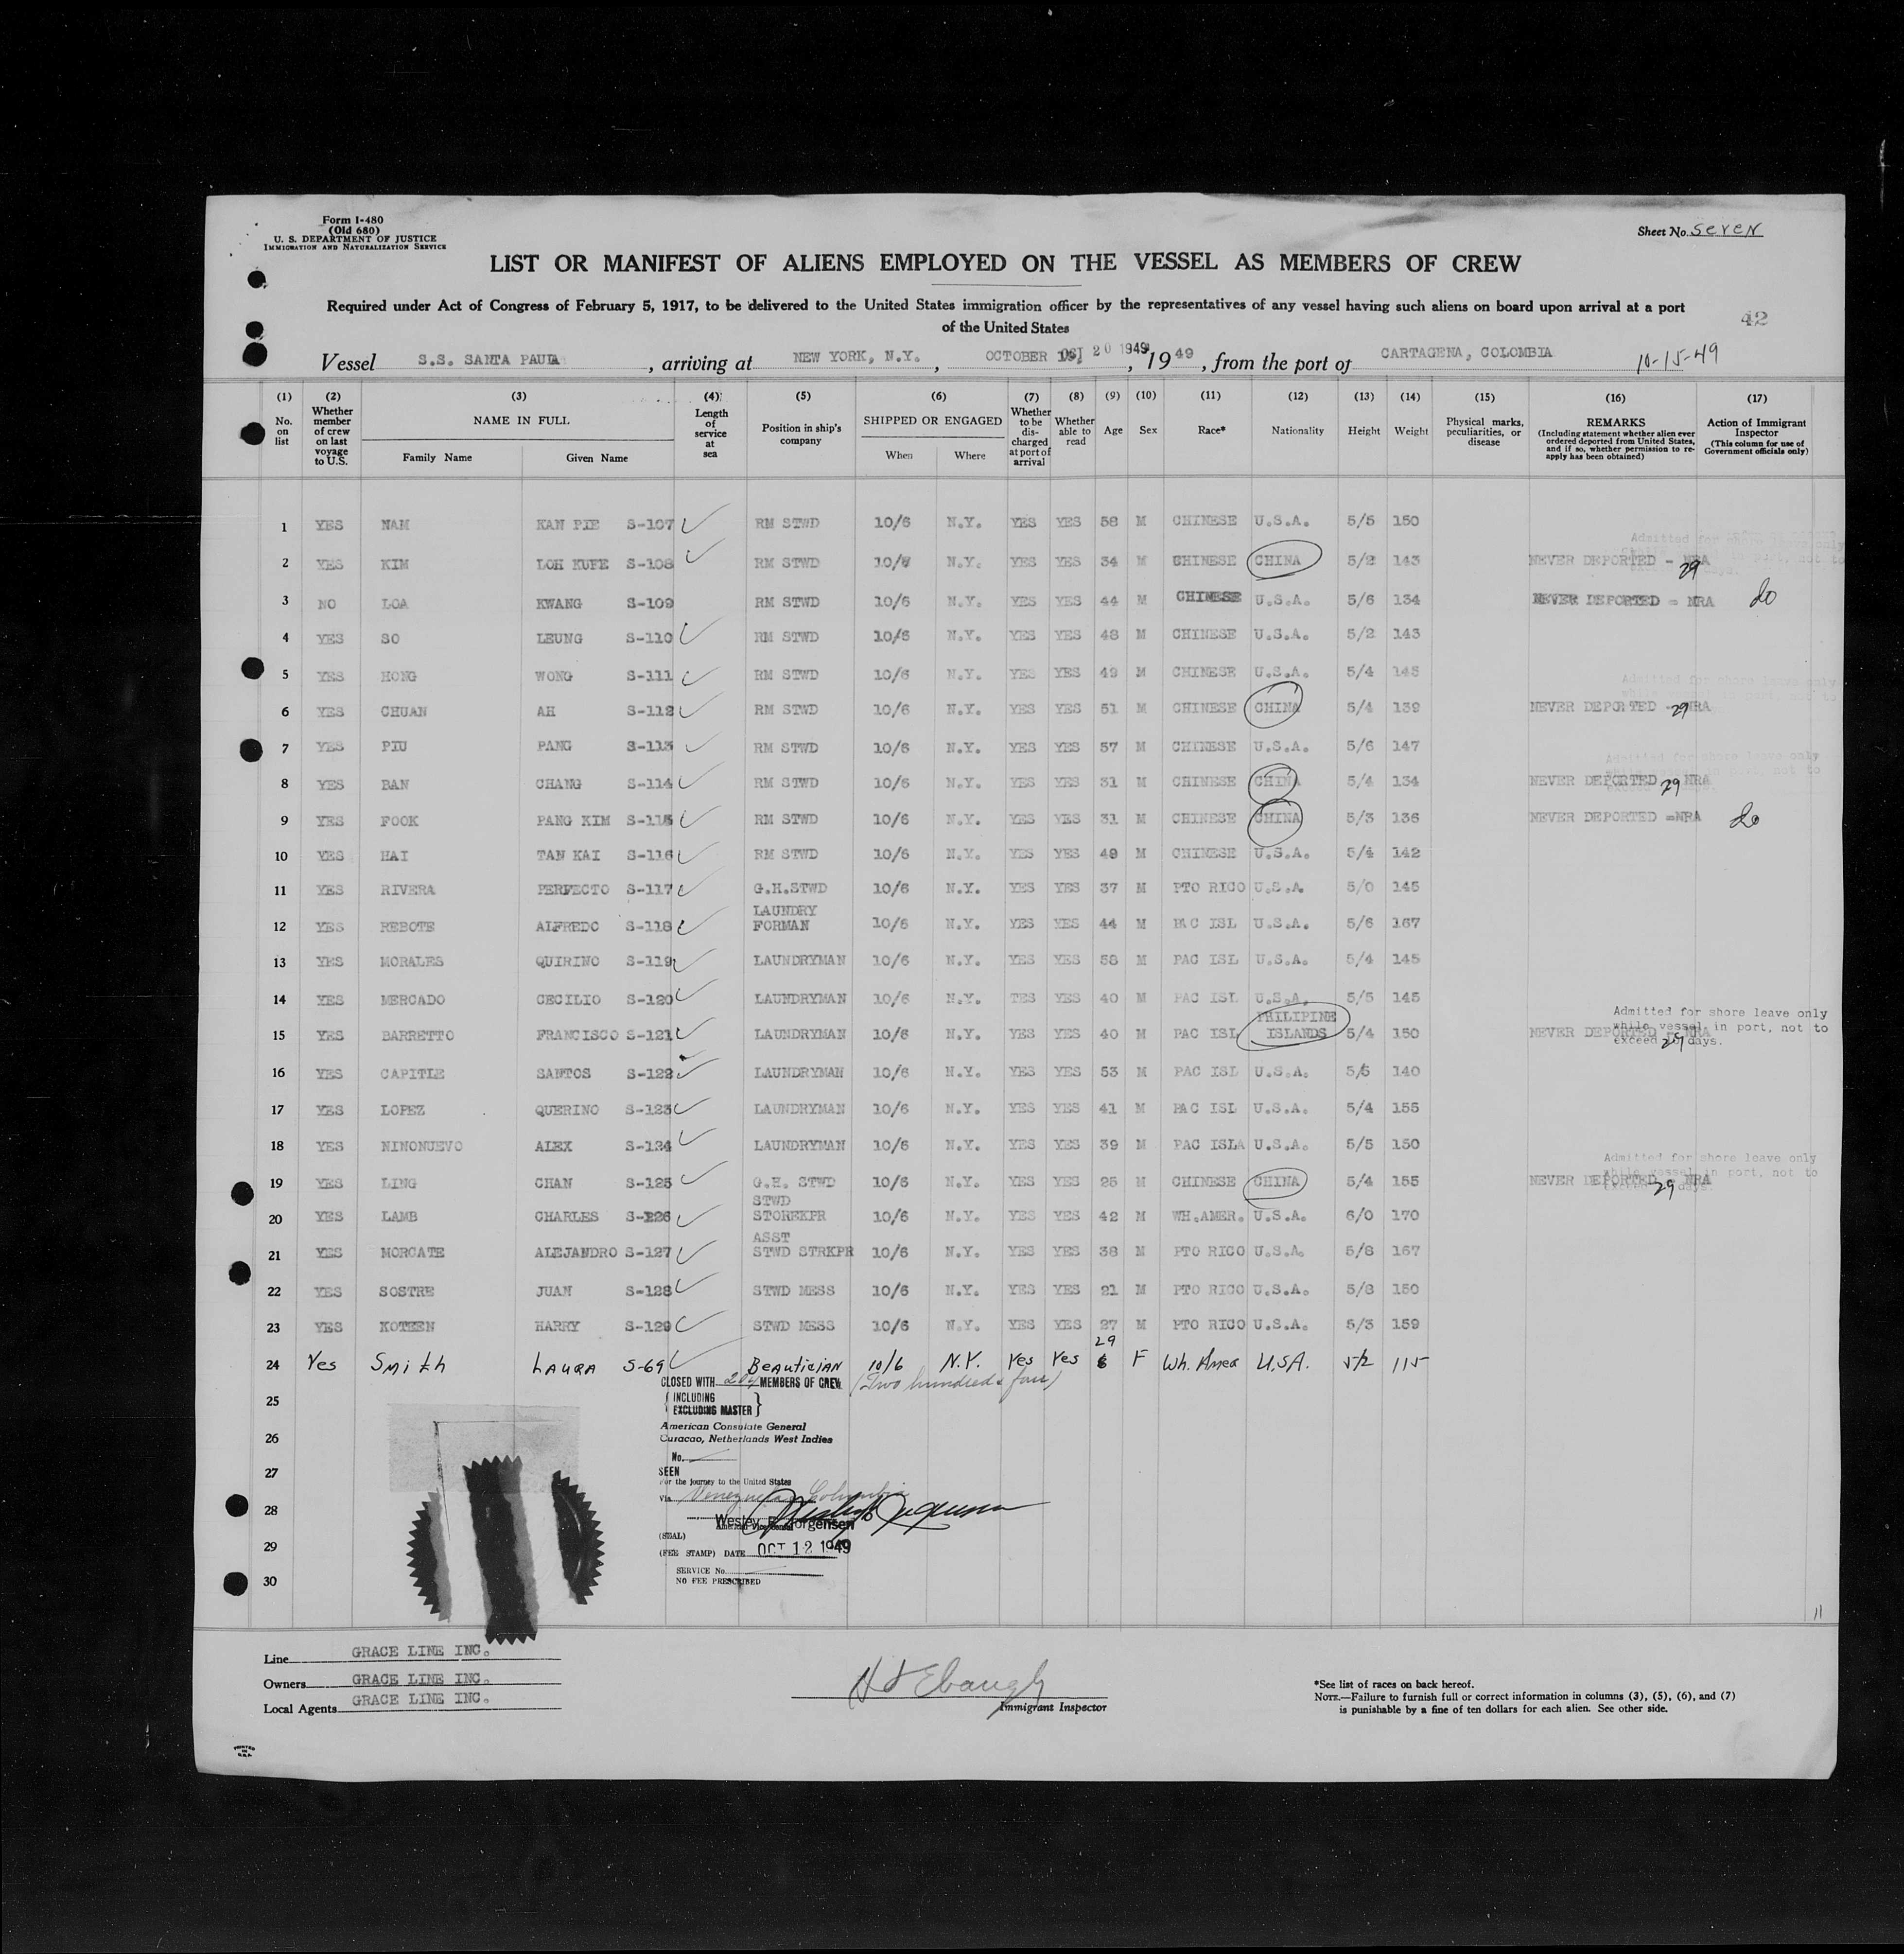 Form I-480
(Old 680)
U. S. DEPARTMENT OF JUSTICE
IMMIGRATION AND NATURALIZATION SERVICE
Sheet No. SeveN
LIST OR MANIFEST OF ALIENS EMPLOYED ON THE VESSEL AS MEMBERS OF CREW
Required under Act of Congress of February 5, 1917, to be delivered to the United States immigration officer by the representatives of any vessel having such aliens on board upon arrival at a port
of the United States
42
Vessel S.S. SANTA PAULA , arriving at NEW YORK, N.Y. , OCTOBER OCT 20 1949 , 1949 , from the port of CARTAGENA, COLOMBIA 10-15-49
(1) No. on list
(2) Whether member of crew on last voyage to U.S.
(3) NAME IN FULL Family Name Given Name
(4) Length of service at sea
(5) Position in ship's company
(6) SHIPPED OR ENGAGED When Where
(7) Whether to be discharged at port of arrival
(8) Whether able to read
(9) Age
(10) Sex
(11) Race*
(12) Nationality
(13) Height
(14) Weight
(15) Physical marks, peculiarities, or disease
(16) REMARKS (Including statement whether alien ever ordered deported from United States, and if so, whether permission to re-apply has been obtained)
(17) Action of Immigrant Inspector (This column for use of Government officials only)
1 YES NAM KAN PIE S-107 RM STWD 10/6 N.Y. YES YES 58 M CHINESE U.S.A. 5/5 150
Admitted for shore leave only
2 YES KIM LOH KUFE S-108 RM STWD 10/6 N.Y. YES YES 34 M CHINESE CHINA 5/2 143 NEVER DEPORTED - NRA 29
3 NO LOA KWANG S-109 RM STWD 10/6 N.Y. YES YES 44 M CHINESE U.S.A. 5/6 134 NEVER DEPORTED = NRA do
4 YES SO LEUNG S-110 RM STWD 10/6 N.Y. YES YES 48 M CHINESE U.S.A. 5/2 143
5 YES HONG WONG S-111 RM STWD 10/6 N.Y. YES YES 49 M CHINESE U.S.A. 5/4 145
Admitted for shore leave only
6 YES CHUAN AH S-112 RM STWD 10/6 N.Y. YES YES 51 M CHINESE CHINA 5/4 139 NEVER DEPORTED - NRA 29
7 YES PIU PANG S-113 RM STWD 10/6 N.Y. YES YES 57 M CHINESE U.S.A. 5/6 147
Admitted for shore leave only
8 YES BAN CHANG S-114 RM STWD 10/6 N.Y. YES YES 31 M CHINESE CHINA 5/4 134 NEVER DEPORTED NRA 29
9 YES FOOK PANG KIM S-115 RM STWD 10/6 N.Y. YES YES 31 M CHINESE CHINA 5/3 136 NEVER DEPORTED =NRA do
10 YES HAI TAN KAI S-116 RM STWD 10/6 N.Y. YES YES 49 M CHINESE U.S.A. 5/4 142
11 YES RIVERA PERFECTO S-117 G.H.STWD 10/6 N.Y. YES YES 37 M PTO RICO U.S.A 5/0 145
LAUNDRY
12 YES REBOTE ALFREDO S-118 FORMAN 10/6 N.Y. YES YES 44 M PAC ISL U.S.A. 5/6 167
13 YES MORALES QUIRINO S-119 LAUNDRYMAN 10/6 N.Y. YES YES 58 M PAC ISL U.S.A. 5/4 145
14 YES MERCADO CECILIO S-120 LAUNDRYMAN 10/6 N.Y. TES YES 40 M PAC ISL U.S.A. 5/5 145
PHILIPINE
Admitted for shore leave only
while vessel in port, not to
15 YES BARRETTO FRANCISCO S-121 LAUNDRYMAN 10/6 N.Y. YES YES 40 M PAC ISL ISLANDS 5/4 150 NEVER DEPORTED - NRA
exceed 29 days.
16 YES CAPITLE SANTOS S-122 LAUNDRYMAN 10/6 N.Y. YES YES 53 M PAC ISL U.S.A. 5/5 140
17 YES LOPEZ QUERINO S-123 LAUNDRYMAN 10/6 N.Y. YES YES 41 M PAC ISL U.S.A. 5/4 155
18 YES NINONUEVO ALEX S-124 LAUNDRYMAN 10/6 N.Y. YES YES 39 M PAC ISLA U.S.A. 5/5 150
Admitted for shore leave only
while vessel in port, not to
19 YES LING CHAN S-125 G.H. STWD 10/6 N.Y. YES YES 25 M CHINESE CHINA 5/4 155 NEVER DEPORTED NRA 29
STWD
20 YES LAMB CHARLES S-126 STOREKPR 10/6 N.Y. YES YES 42 M WH.AMER. U.S.A. 6/0 170
ASST
21 YES MORCATE ALEJANDRO S-127 STWD STRKPR 10/6 N.Y. YES YES 38 M PTO RICO U.S.A. 5/8 167
22 YES SOSTRE JUAN S-128 STWD MESS 10/6 N.Y. YES YES 21 M PTO RICO U.S.A. 5/8 150
23 YES KOTEEN HARRY S-129 STWD MESS 10/6 N.Y. YES YES 27 M PTO RICO U.S.A. 5/3 159
24 Yes Smith LAURA S-69 BeAutician 10/6 N.Y. Yes Yes 29 F Wh. Amer U.S.A. 5/2 115
CLOSED WITH 204 MEMBERS OF CREW (Two hundred & four)
25
INCLUDING
EXCLUDING MASTER
American Consulate General
26 Curacao, Netherlands West Indies
No.
27 SEEN
For the journey to the United States
Via Venezuela, Colombia
28
Wesley E. Jorgensen
American Vice Consul
(SEAL)
29 (FEE STAMP) DATE OCT 12 1949
SERVICE No.
30 NO FEE PRESCRIBED
11
Line GRACE LINE INC.
Owners GRACE LINE INC.
Local Agents GRACE LINE INC.
H J Ebaugh
Immigrant Inspector
*See list of races on back hereof.
NOTE.—Failure to furnish full or correct information in columns (3), (5), (6), and (7)
is punishable by a fine of ten dollars for each alien. See other side.
PRINTED
IN
U.S.A.